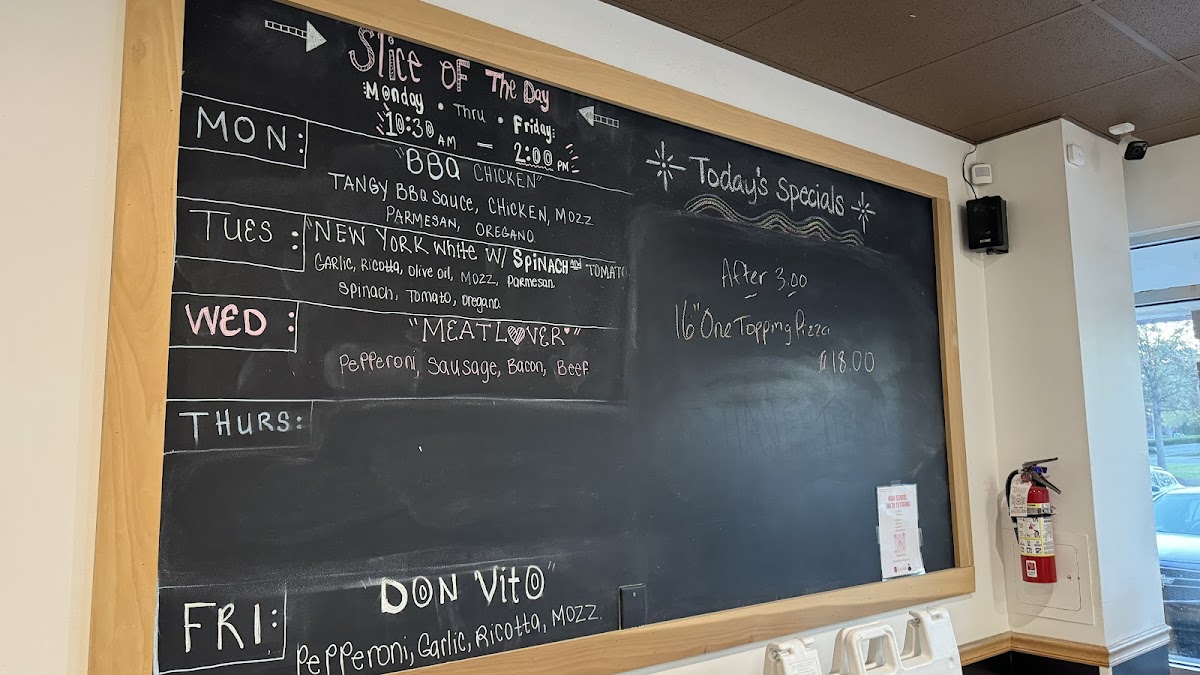 Slice OF The Day
Monday • Thru • Friday:
10:30 AM — 2:00 PM
MON:
"BBQ CHICKEN"
TANGY BBQ SAUCE, CHICKEN, MOZZ
PARMESAN, OREGANO
TUES:
"NEW YORK White W/ SPINACH and TOMATO
GARLIC, Ricotta, Olive Oil, MOZZ, Parmesan
Spinach, Tomato, Oregano
WED:
"MEATLOVER"
Pepperoni, Sausage, Bacon, Beef
THURS:
FRI:
DON VitO"
Pepperoni, Garlic, Ricotta, MOZZ.
Today's Specials
After 3:00
16" One Topping Pizza
$18.00
HIGH SCHOOL
MATH TUTORING